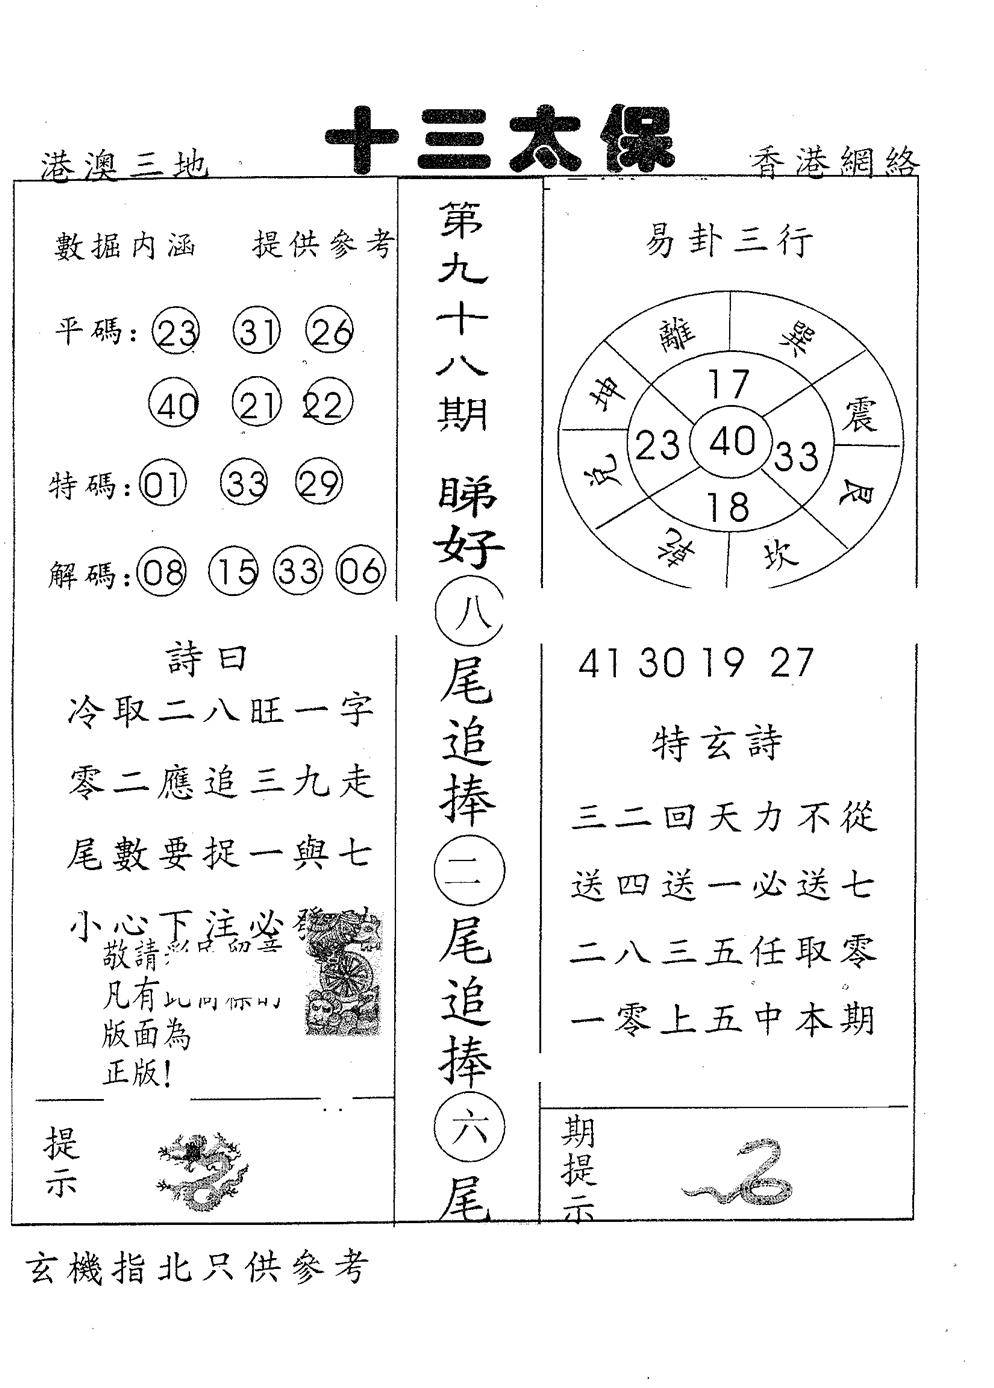 十三太保
港澳三地
香港網絡
數掘内涵 提供參考
平碼: 23 31 26
40 21 22
特碼: 01 33 29
解碼: 08 15 33 06
詩曰
冷取二八旺一字
零二應追三九走
尾數要捉一與七
小心下注必發
敬請彩民留意
凡有此商標的
版面為
正版!
提示
第九十八期
睇好八尾追捧二尾追捧六尾
易卦三行
離 巽
坤 震
兌 艮
乾 坎
17
23 40 33
18
41 30 19 27
特玄詩
三二回天力不從
送四送一必送七
二八三五任取零
一零上五中本期
期提示
玄機指北只供參考